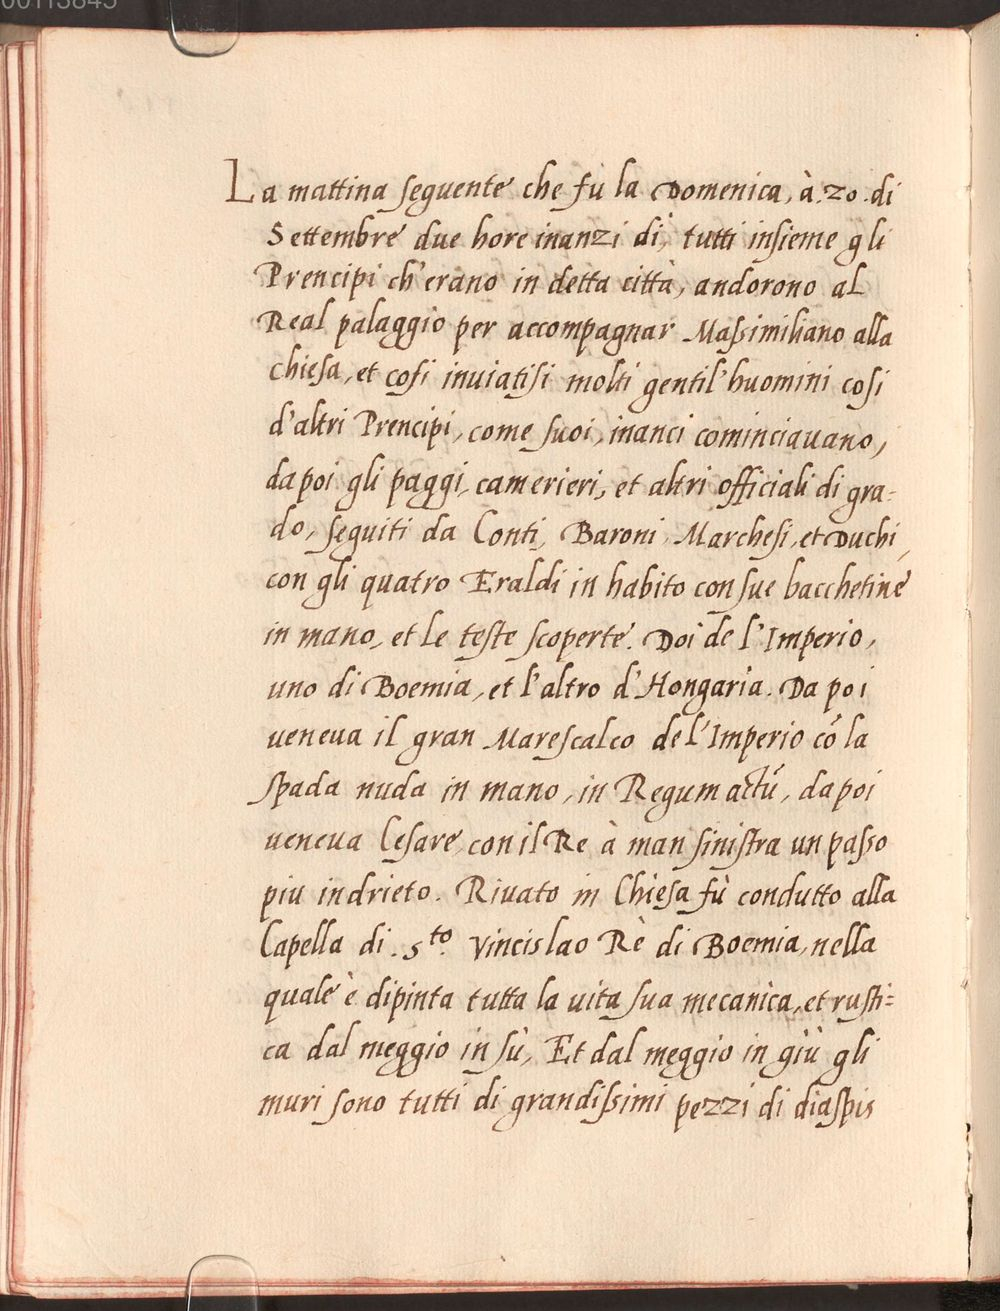 00113845
La mattina seguente che fù la Domenica, à .20. di
Settembre due hore inanzi dì, tutti insieme gli
Prencipi ch'erano in detta città, andorono al
Real palaggio per accompagnar Massimiliano alla
chiesa, et cosi inuiatisi molti gentil'huomini cosi
d'altri Prencipi, come suoi, inanci cominciauano,
dapoi gli paggi, camerieri, et altri officiali di gra-
do, seguiti da Conti, Baroni, Marchesi, et Duchi,
con gli quatro Eraldi in habito con sue bacchetine
in mano, et le teste scoperte. Doi de l'Imperio,
uno di Boemia, et l'altro d'Hongaria. Da poi
ueneua il gran Marescalco de l'Imperio cō la
spada nuda in mano, in Regum actū, dapoi
ueneua Cesare, con il Re à man sinistra un passo
piu indrieto. Riuato in Chiesa fù condutto alla
Capella di .S.to Vincislao Rè di Boemia, nella
quale è dipinta tutta la uita sua mecanica, et rusti=
ca dal meggio in sù, Et dal meggio in giù gli
muri sono tutti di grandissimi pezzi di diaspis